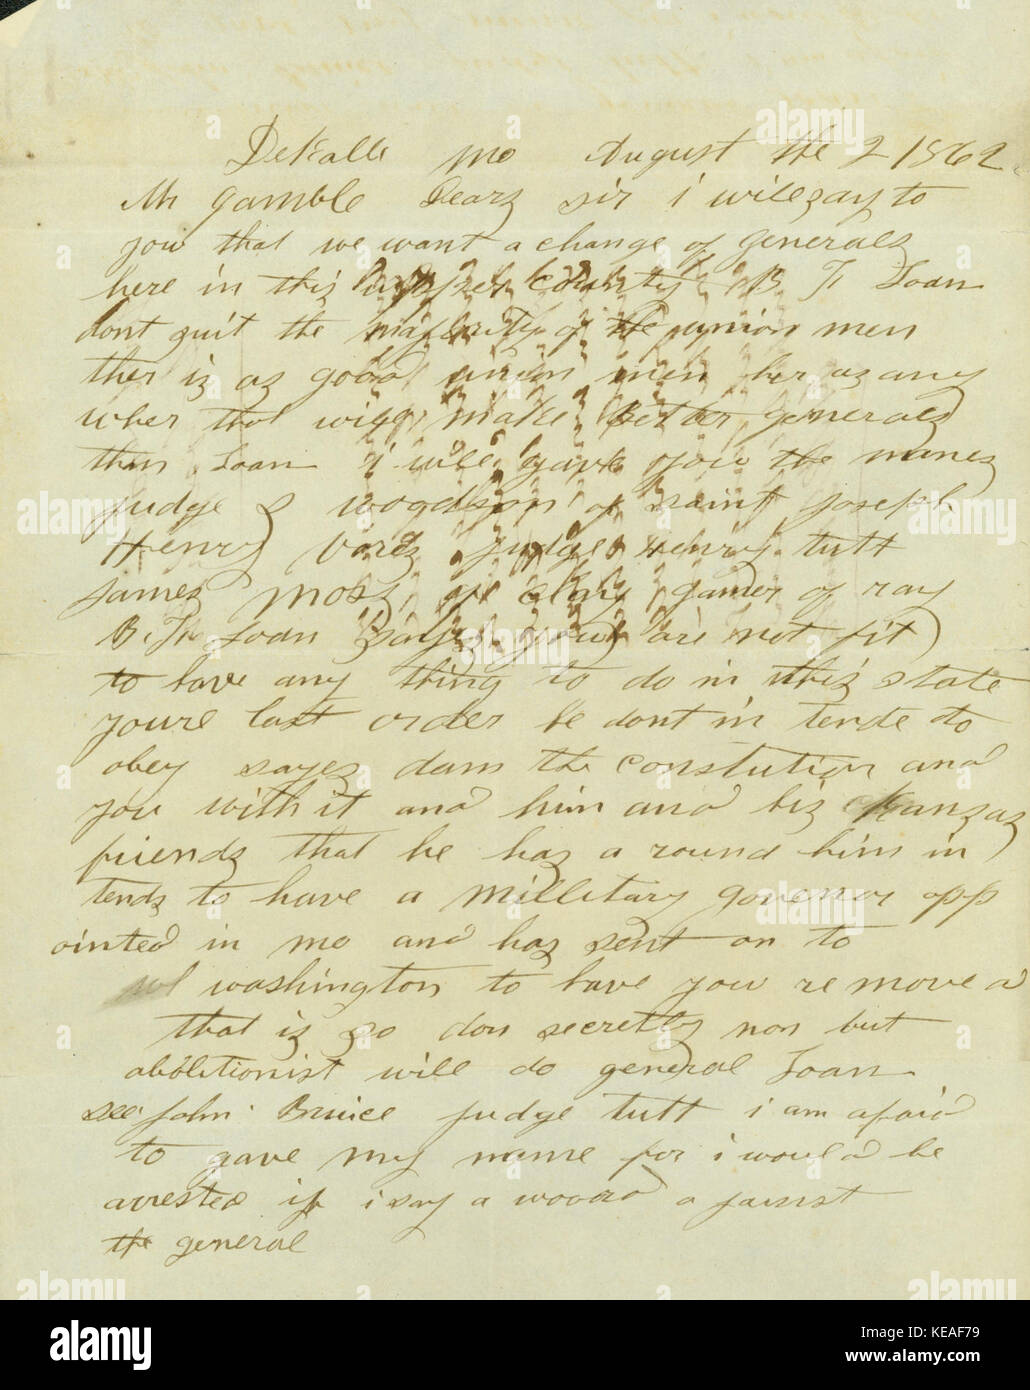 DeKalb mo August the 2 1862
Mr gamble Dears sir i will say to
you that we want a change of generals
here in this county B F Loan
dont suit the majority of the union men
ther is as good union men her as any
wher that will make better generals
then Loan i will gave you the names
judge woodson of saint joseph
Henry judge Henry tutt
james moss, of ray
B. F. Loan sayes you are not fit
to have any thing to do in this state
youre last order he dont in tende to
obey sayes dam the constution and
you with it and him and his Kanzas
friends that he has a round him in
tends to have a millitary govenor app
ointed in mo and has sent on to
washington to have you re moved
that is so don secretly non but
abolitionist will do general Loan
see John Bruice judge tutt i am afraid
to gave my name for i would be
arrested if i say a woord a gainst
the general
alamy
alamy stock photo
KEAF79
www.alamy.com